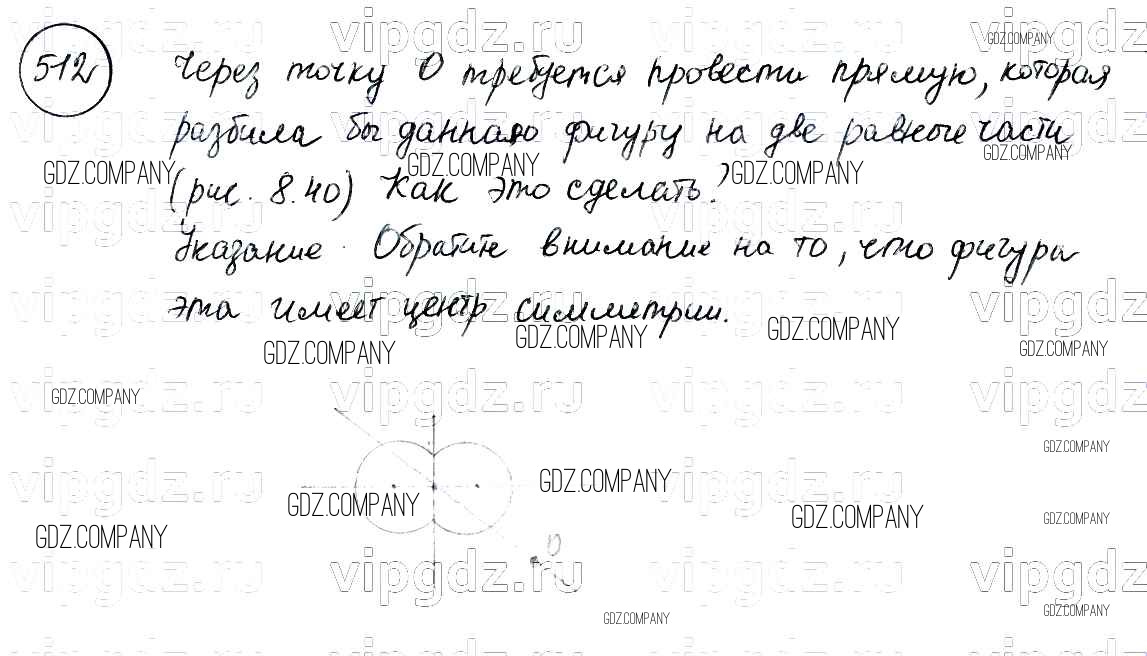 512
Через точку О требуется провести прямую, которая
разбила бы данную фигуру на две равные части
(рис. 8.40) Как это сделать?
Указание. Обратите внимание на то, что фигура
эта имеет центр симметрии.
O
vipgdz.ru
GDZ.COMPANY